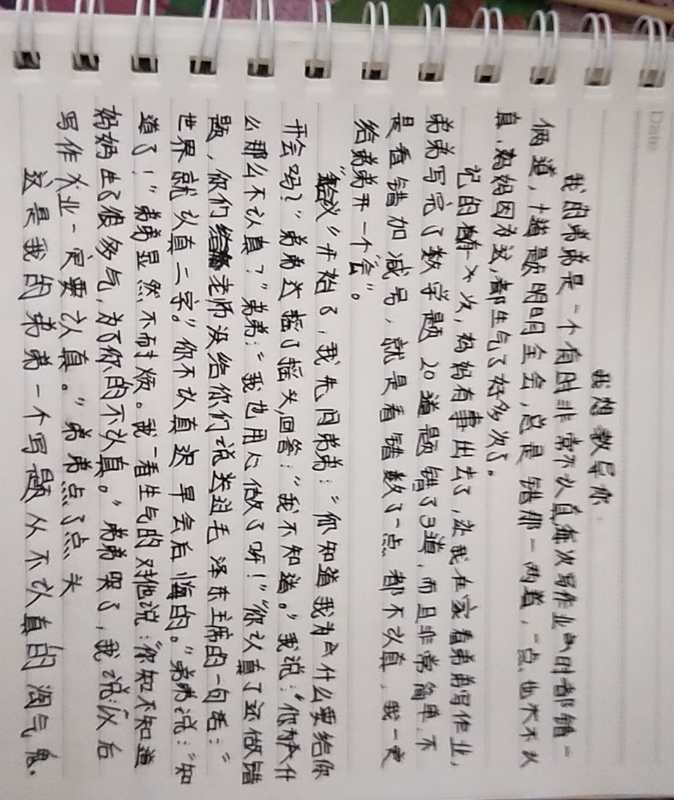 Date
我想教导你
我的弟弟是一个有时非常不认真每次写作业时都错一
俩道,十道题明明全会,总是错那一两道,一点也不认
真,妈妈因为这,都生气了好多次了。
记的有一次,妈妈有事出去了,让我在家看弟弟写作业,
弟弟写完了数学题20道题错了3道,而且非常简单,不
是看错加减号,就是看错数了一点都不认真,我一定
给弟弟开一个"会"。
"会议"开始了,我先问弟弟:"你知道我为什么要给你
开会吗?"弟弟摇了摇头,回答:"我不知道。"我说:"你为什
么那么不认真?"弟弟:"我也用心做了呀!""你认真了还做错
题,你们老师没给你们说过毛泽东主席的一句话:"
世界就认真二字。"你不认真迟早会后悔的。"弟弟说:"知
道了!"弟弟显然不耐烦。我一看生气的对他说:"你知不知道
妈妈生了很多气,为了你的不认真。"弟弟哭了,我说:"以后
写作业一定要认真。"弟弟点了点头
这是我的弟弟一个写题从不认真的淘气鬼.